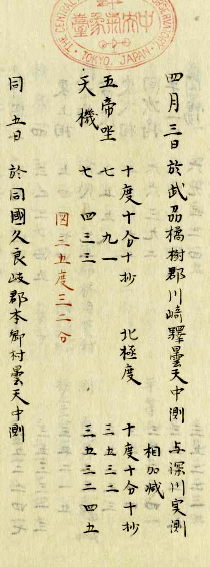 THE CENTRAL
TOKYO. JAPAN.
四月三日 於武刕橘樹郡川崎驛曇天中測 与深川実測
相加減
十度十分十抄 北極度 十度十分十抄
五帝坐 七五九一 三五三二
天機 七四三三 三五三二四五
図三五度三二分
同五日 於同國久良岐郡本郷村曇天中測